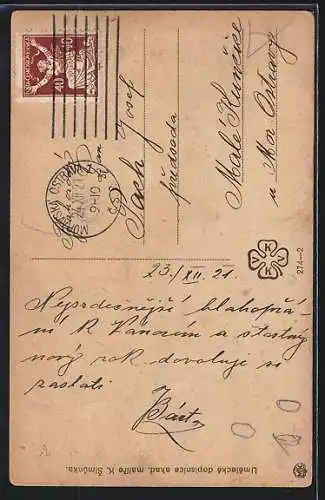 40 40
MORAVSKÁ OSTRAVA
24.XII.21
9-10
Pach Josef
předseda
Malé Kunčice
u Mor Ostravy
V K K V
274-2
23./XII. 21.
Nejsrdečnější blahopřá-
ní K Vánocím a stastný
nový rok dovoluje si
zaslati
Umělecké dopisnice akad. malíře K. Šimůnka.